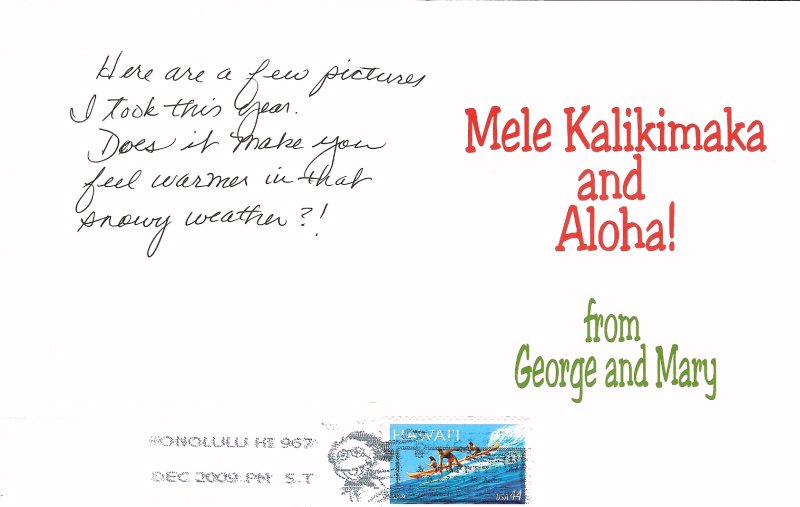 Here are a few pictures
I took this year.
Does it make you
feel warmer in that
snowy weather?!
Mele Kalikimaka
and
Aloha!
from
George and Mary
HONOLULU HI 967
DEC 2009 PM S.T
HAWAI'I
USA 44